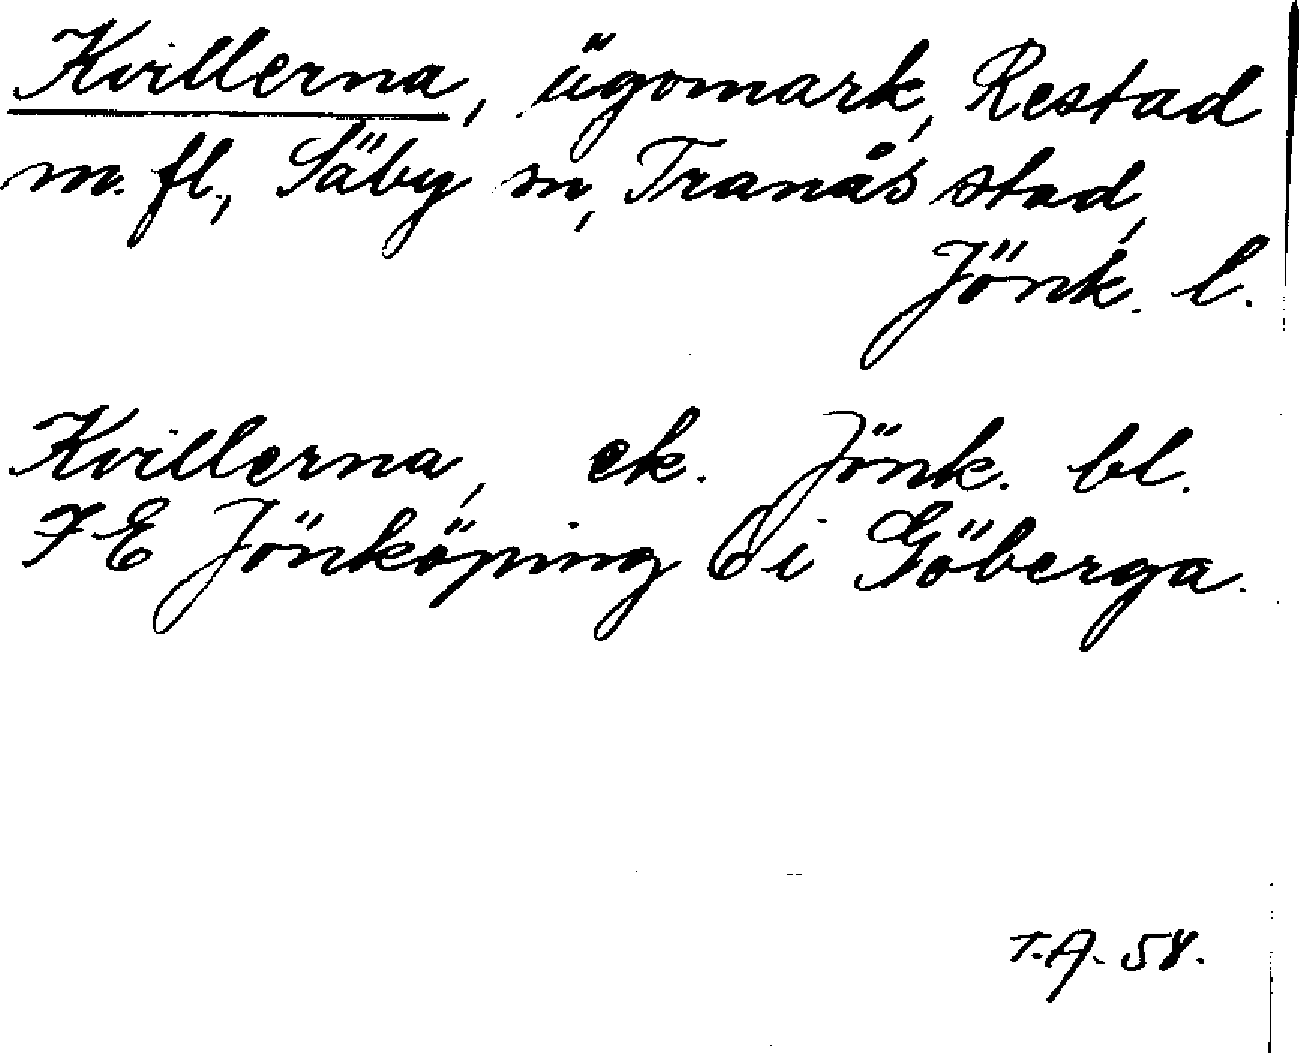 Kvillerna, ägomark, Restad
m. fl., Säby sn, Tranås stad,
Jönk. l.
Kvillerna, ek. Jönk. bl.
7 E Jönköping 6 i Göberga.
T.A. 58.